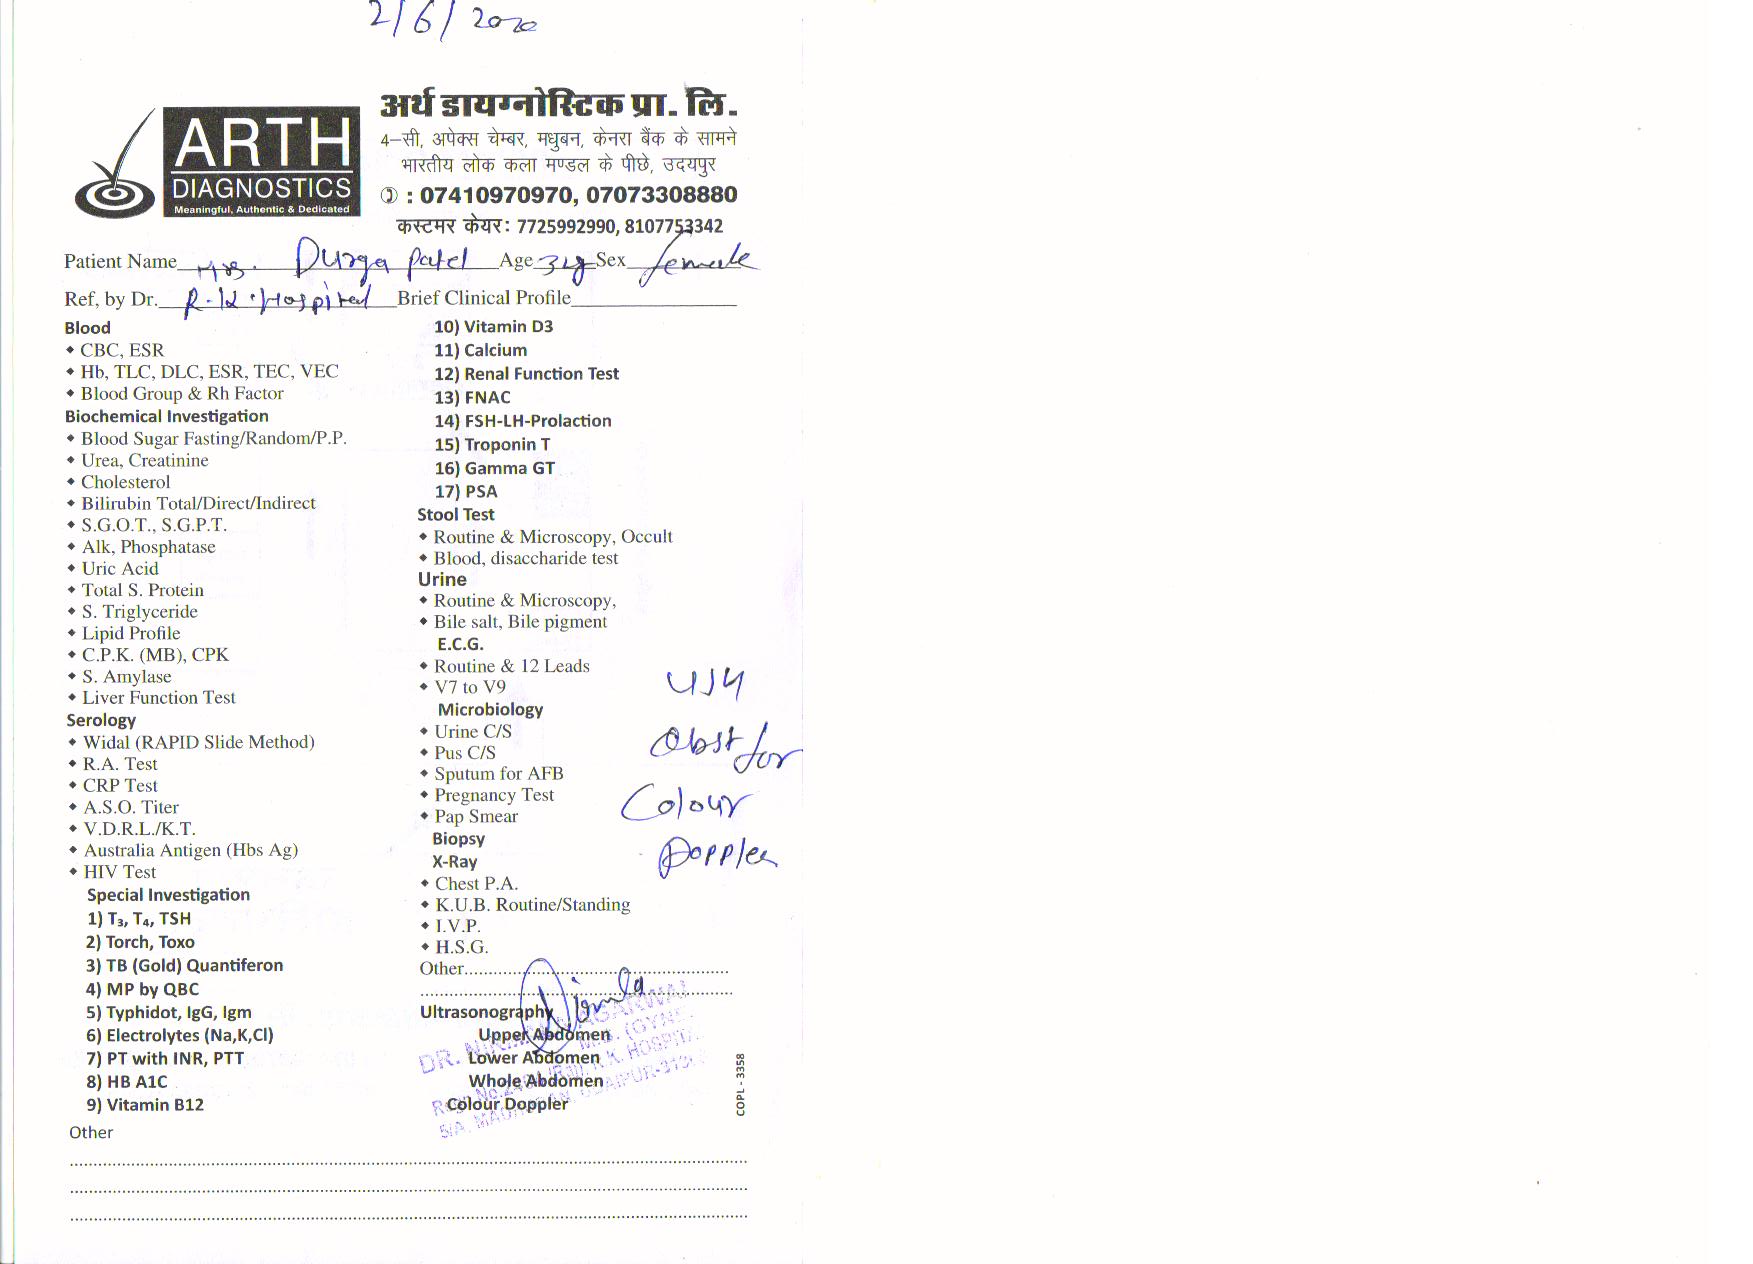 2/6/2020
ARTH
DIAGNOSTICS
Meaningful, Authentic & Dedicated
अर्थ डायग्नोस्टिक प्रा. लि.
4–सी, अपेक्स चेम्बर, मधुबन, केनरा बैंक के सामने
भारतीय लोक कला मण्डल के पीछे, उदयपुर
: 07410970970, 07073308880
कस्टमर केयर: 7725992990, 8107753342
Patient Name Mrs. Durga Patel Age 34y Sex female
Ref, by Dr. Hospital Brief Clinical Profile
Blood
CBC, ESR
Hb, TLC, DLC, ESR, TEC, VEC
Blood Group & Rh Factor
Biochemical Investigation
Blood Sugar Fasting/Random/P.P.
Urea, Creatinine
Cholesterol
Bilirubin Total/Direct/Indirect
S.G.O.T., S.G.P.T.
Alk, Phosphatase
Uric Acid
Total S. Protein
S. Triglyceride
Lipid Profile
C.P.K. (MB), CPK
S. Amylase
Liver Function Test
Serology
Widal (RAPID Slide Method)
R.A. Test
CRP Test
A.S.O. Titer
V.D.R.L./K.T.
Australia Antigen (Hbs Ag)
HIV Test
Special Investigation
1) T₃, T₄, TSH
2) Torch, Toxo
3) TB (Gold) Quantiferon
4) MP by QBC
5) Typhidot, IgG, Igm
6) Electrolytes (Na,K,Cl)
7) PT with INR, PTT
8) HB A1C
9) Vitamin B12
Other
10) Vitamin D3
11) Calcium
12) Renal Function Test
13) FNAC
14) FSH-LH-Prolaction
15) Troponin T
16) Gamma GT
17) PSA
Stool Test
Routine & Microscopy, Occult
Blood, disaccharide test
Urine
Routine & Microscopy,
Bile salt, Bile pigment
E.C.G.
Routine & 12 Leads
V7 to V9
Microbiology
Urine C/S
Pus C/S
Sputum for AFB
Pregnancy Test
Pap Smear
Biopsy
X-Ray
Chest P.A.
K.U.B. Routine/Standing
I.V.P.
H.S.G.
Other
Ultrasonography
Upper Abdomen
Lower Abdomen
Whole Abdomen
Colour Doppler
Obst for
Colour
Doppler
Nirmla
COPL - 3358